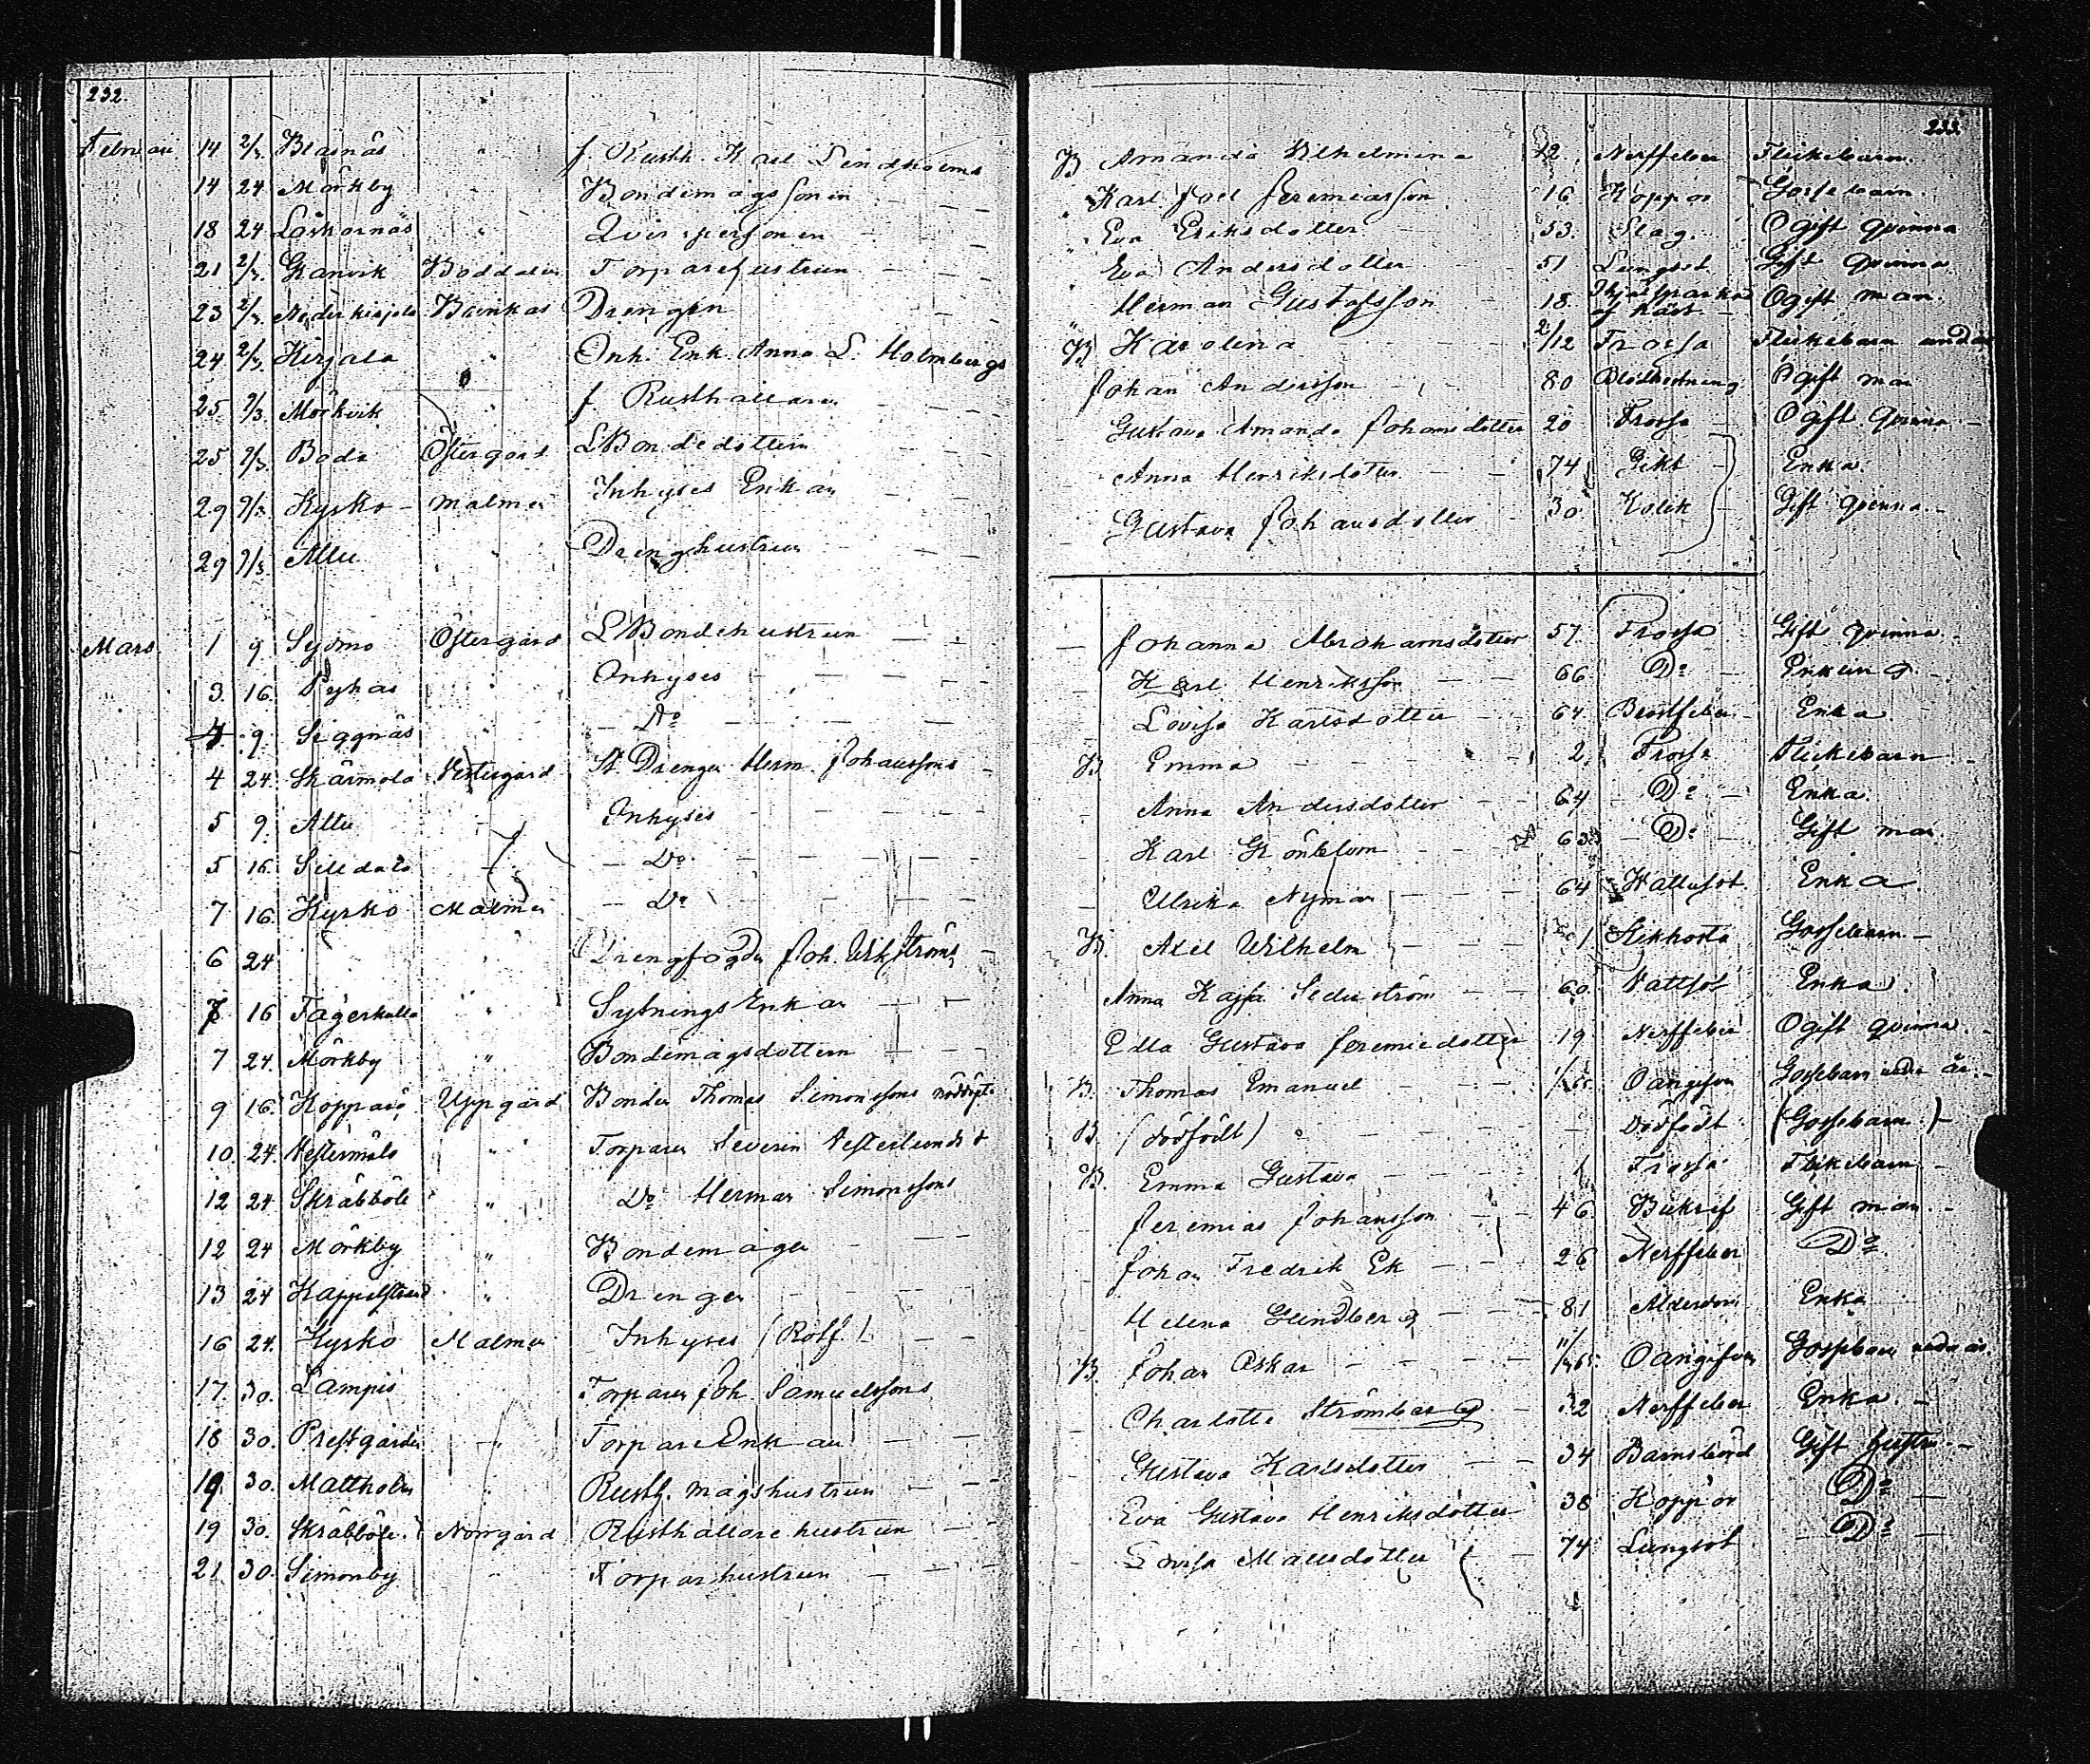 232.
Februari 14 2/3 Blasnäs " f. Rusth. Karl Lindholms
14 24 Mörkby " Bondemågssonen
18 24 Lorkarnäs " Qvinspersonen
21 2/3 Granvik Boddalen Torparehustrun
23 2/3 Nederkirjala Bänkas Drengen
24 2/3 Kirjala " Inh. Enk. Anna L. Holmbergs
25 9/3 Mörkvik " f. Rusthållaren
25 9/3 Boda Östergård LBondedottern
29 9/3 Kyrko malmen Inhyses Enkan
29 9/3 Attu " Drenghustrun
Mars 1 9 Sydmo Östergård LBondehustrun
3 16. Pyhäs " Inhyses
4 9. Siggnäs " Do
4 24. Skärmola Vestergård St Drengen Herm. Johanssons
5 9. Attu Inhyses
5 16. Sildala Do
7 16. Kyrko Malmen Do
6 24 " " Drengfogden Joh. Wikströms
7 16 Fagerkulla " SytningsEnkan
7 24. Mörkby " Bondemågsdottern
9 16. Kopparö Uppgård Bonden Thomas Simonssons
10. 24. Vestermälö " Torparen Severin Vesterlunds
12 24 Skräbböle " Do Herman Simonssons
12 24 Mörkby " Bondemågen
13 24 Kappelstrand " Drengen
16 24. Kyrko Malmen Inhyses (Rotf.)
17. 30. Lampis Torparen Joh. Samuelssons
18 30. Prestgården " TorpareEnkan
19. 30. Mattholm " Rusth. mågshustrun
19 30. Skräbböle Norrgård Rusthållarehustrun
21 30. Simonby " Torparhustrun
233.
B Amanda Wilhelmina 12 Nerffeber Flickebarn.
Karl Joel Jeremiasson 16 Koppor Gossebarn.
Eva Eriksdotter 53. Slag. Ogift qvinna
Eva Andersdotter 51 Lungsot Gift qvinna
Herman Gustafsson 18. Ihjälsparkad af häst Ogift man.
B Karolina 2/12 Frossa Flickebarn under
Johan Andersson 80 Ogift man
Gustava Amanda Johansdotter 20 Frossa Ogift qvinna
Anna Henriksdotter 74 Gikt Enka.
Gustava Johansdotter 30 Kolik Gift qvinna.
Johanna Abrahamsdotter 57. Frossa Gift qvinna.
Karl Henriksson 66 Do Enkling
Lovisa Karlsdotter 64. Bröstfeber Enka
B Emma 2. Frossa Flickebarn
Anna Andersdotter 64 Do Enka.
Karl Grönblom 63 Do Gift man
Ulrika Nyman 64 Vattusot. Enka
B. Axel Wilhelm 1 Kikhosta Gossebarn
Anna Kajsa Sederström 60. Vattsot Enka.
Edla Gustava Jeremiedotter 19 Nerffeber Ogift qvinna.
B. Thomas Emanuel Oangifven Gossebarn under år.
B. (dödfödt) Dödfödt (Gossebarn.)
B. Emma Gustava 1 Frossa Flickebarn
Jeremias Johansson 46. Bukref Gift man.
Johan Fredrik Ek 26 Nerffeber Do
Helena Lindberg 81 Ålderdom Enka
B Johan Oskar Oangifven Gossebarn under år.
Charlotta Strömberg 32 Nerffeber Enka.
Gustava Karlsdotter 34 Barnsbörd Gift hustru.
Eva Gustava Henriksdotter 38 Koppor Do
Lovisa Mattsdotter 74 Lungsot Do